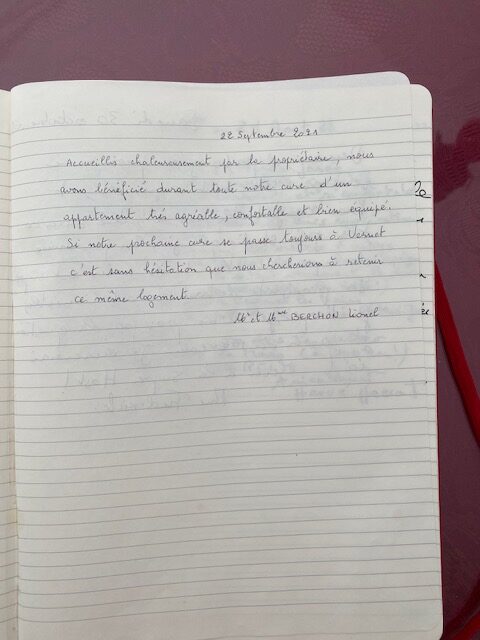 22 Septembre 2021
Accueillis chaleureusement par la propriétaire, nous
avons bénéficié durant toute notre cure d'un
appartement très agréable, confortable et bien équipé.
Si notre prochaine cure se passe toujours à Vernet
c'est sans hésitation que nous chercherions à retenir
ce même logement.
Mr et Mme BERCHON Lionel